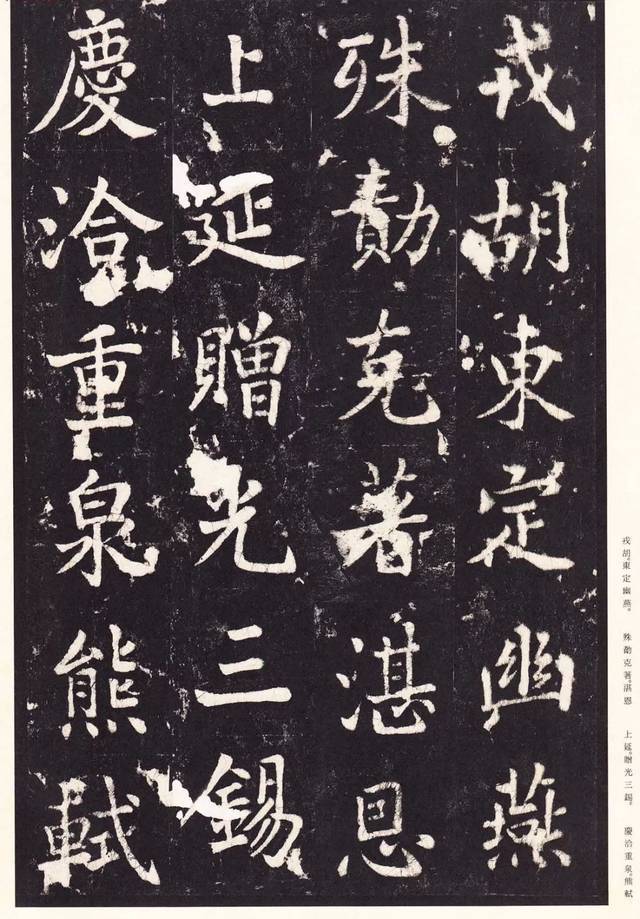 戎胡東定幽燕
殊勣克著湛恩
上延贈光三錫
慶洽重泉熊軾
戎胡。東定幽燕。 殊勣克著。湛恩 上延。贈光三錫。 慶洽重泉。熊軾